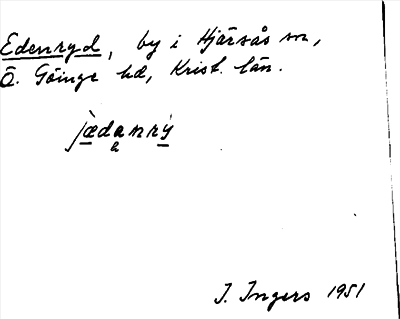 Edenryd, by i Hjärsås sn,
Ö. Göinge hd, Krist. län.
jædanrý
a
I. Ingers 1951